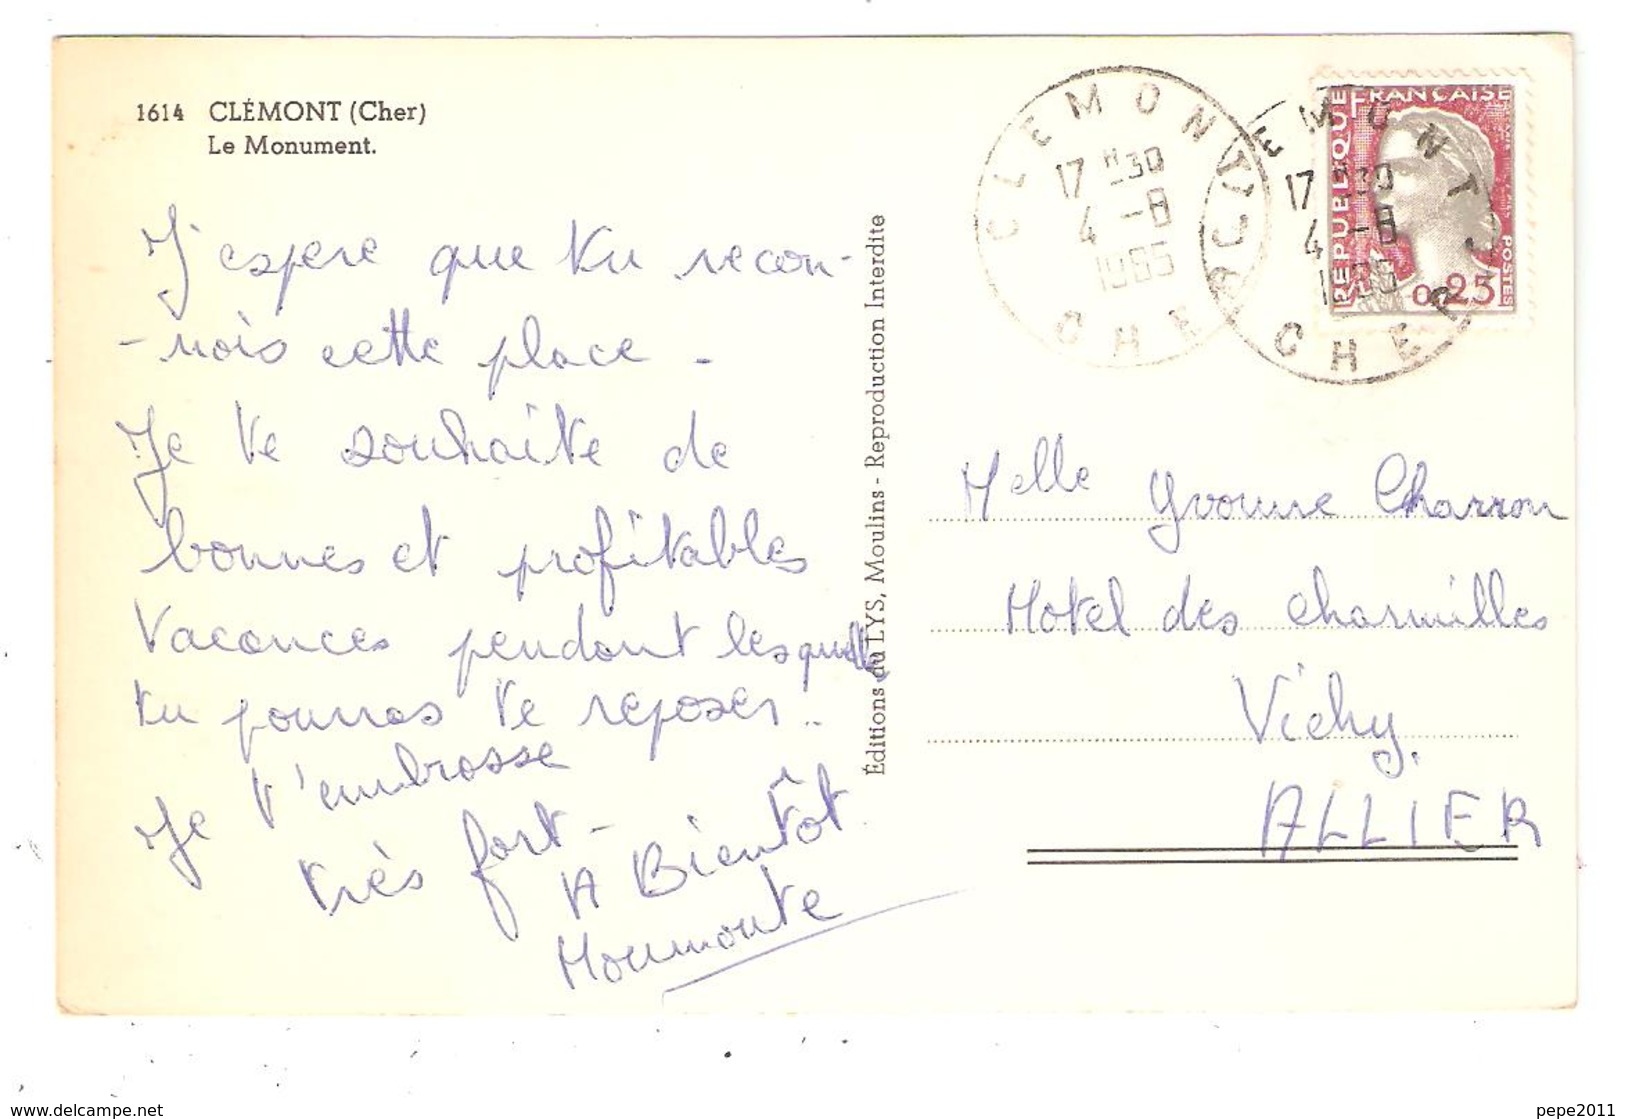 1614 CLÉMONT (Cher)
Le Monument.
J'espere que tu recon-
-nois cette place -
Je te souhaite de
bonnes et profitables
Vacances pendant lesquelles
tu pourras te reposer..
Je t'embrasse
très fort -
A Bientôt
Éditions du LYS, Moulins - Reproduction Interdite
CLEMONT
17 H30
4 -8
1965
CHER
EMONT
17 H30
4 -8
CHER
RÉPUBLIQUE FRANÇAISE
0,25
POSTES
Melle Yvonne Charron
Hotel des charmilles
Vichy.
ALLIER
www.delcampe.net
pepe2011